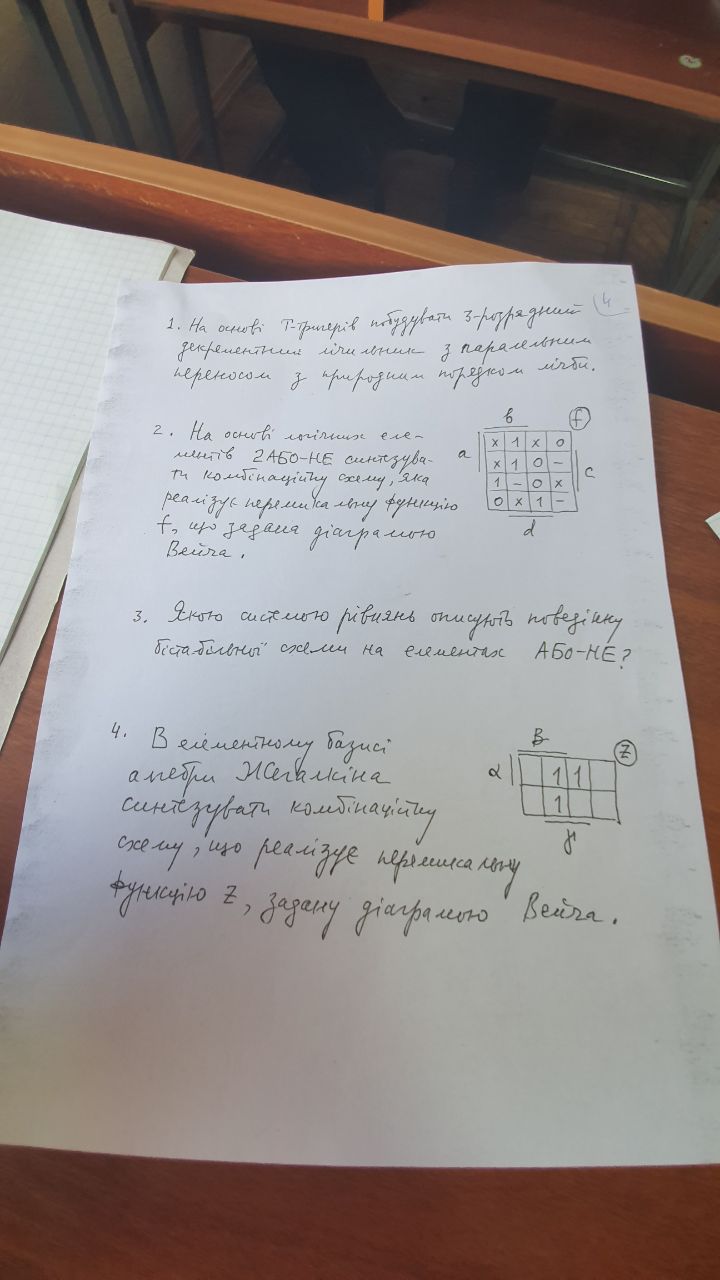 4
1. На основі Т-тригерів побудувати 3-розрядний
декрементний лічильник з паралельним
переносом з природним порядком лічби.
2. На основі логічних еле-
ментів 2АБО-НЕ синтезува-
ти комбінаційну схему, яка
реалізує перемикальну функцію
f, що задана діаграмою
Вейча.
в f
a x 1 x 0
x 1 0 - c
1 - 0 x
0 x 1 -
d
3. Якою системою рівнянь описують поведінку
бістабільної схеми на елементах АБО-НЕ?
4. В елементному базисі
алгебри Жегалкіна
синтезувати комбінаційну
схему, що реалізує перемикальну
функцію Z, задану діаграмою Вейча.
β Z
α 1 1
1
γ